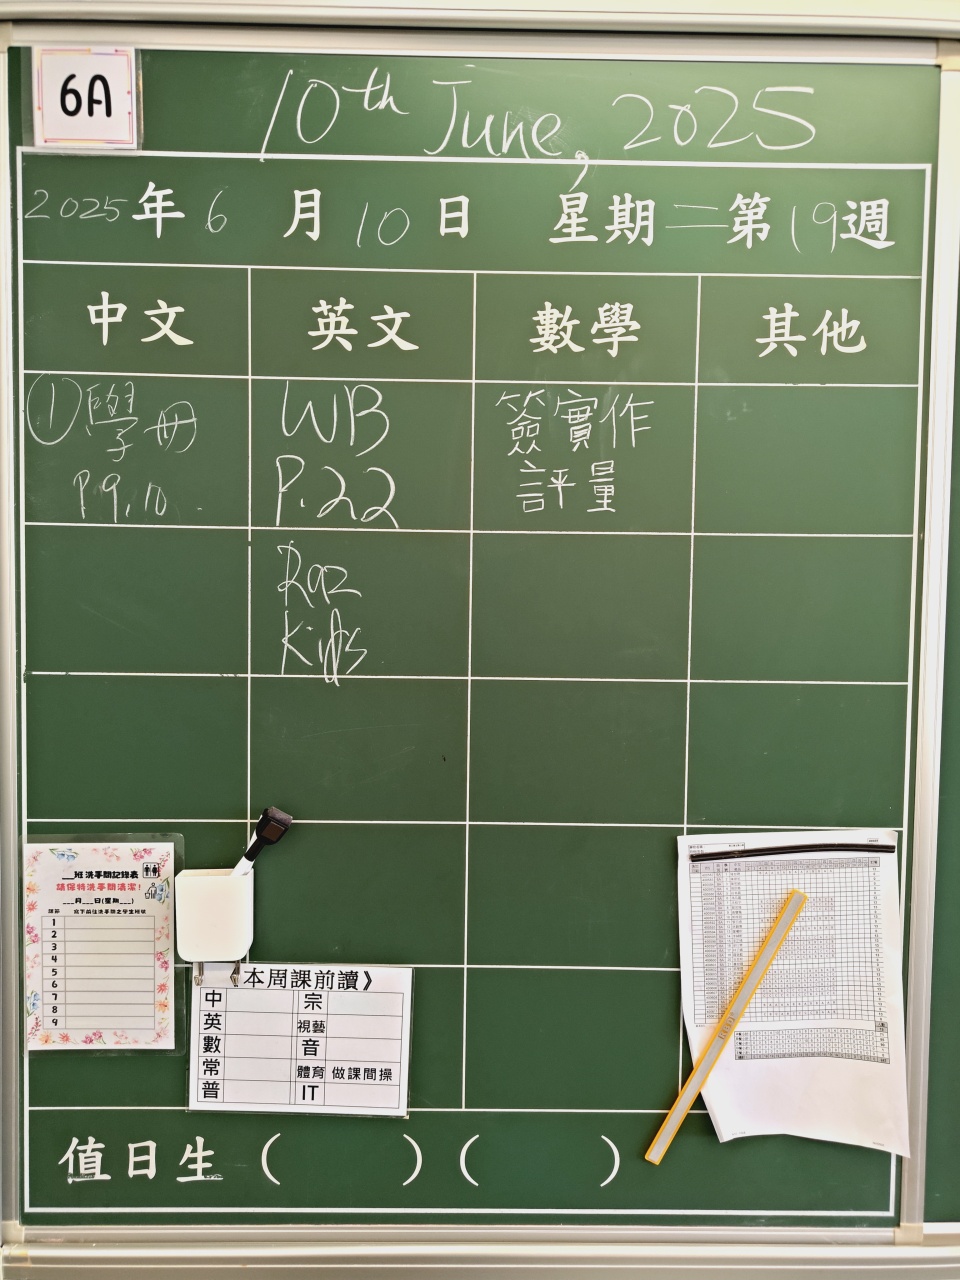 6A
10th June, 2025
2025年6月10日 星期二第19週
中文 英文 數學 其他
①學冊 WB 簽實作
P.9,10. P.22 評量
Raz
Kids
___班洗手間記錄表
請保持洗手間清潔!
___月___日(星期___)
課節 寫下前往洗手間之學生班號
1
2
3
4
5
6
7
8
9
本周課前讀》
中 宗
英 視藝
數 音
常 體育 做課間操
普 IT
值日生 ( ) ( )